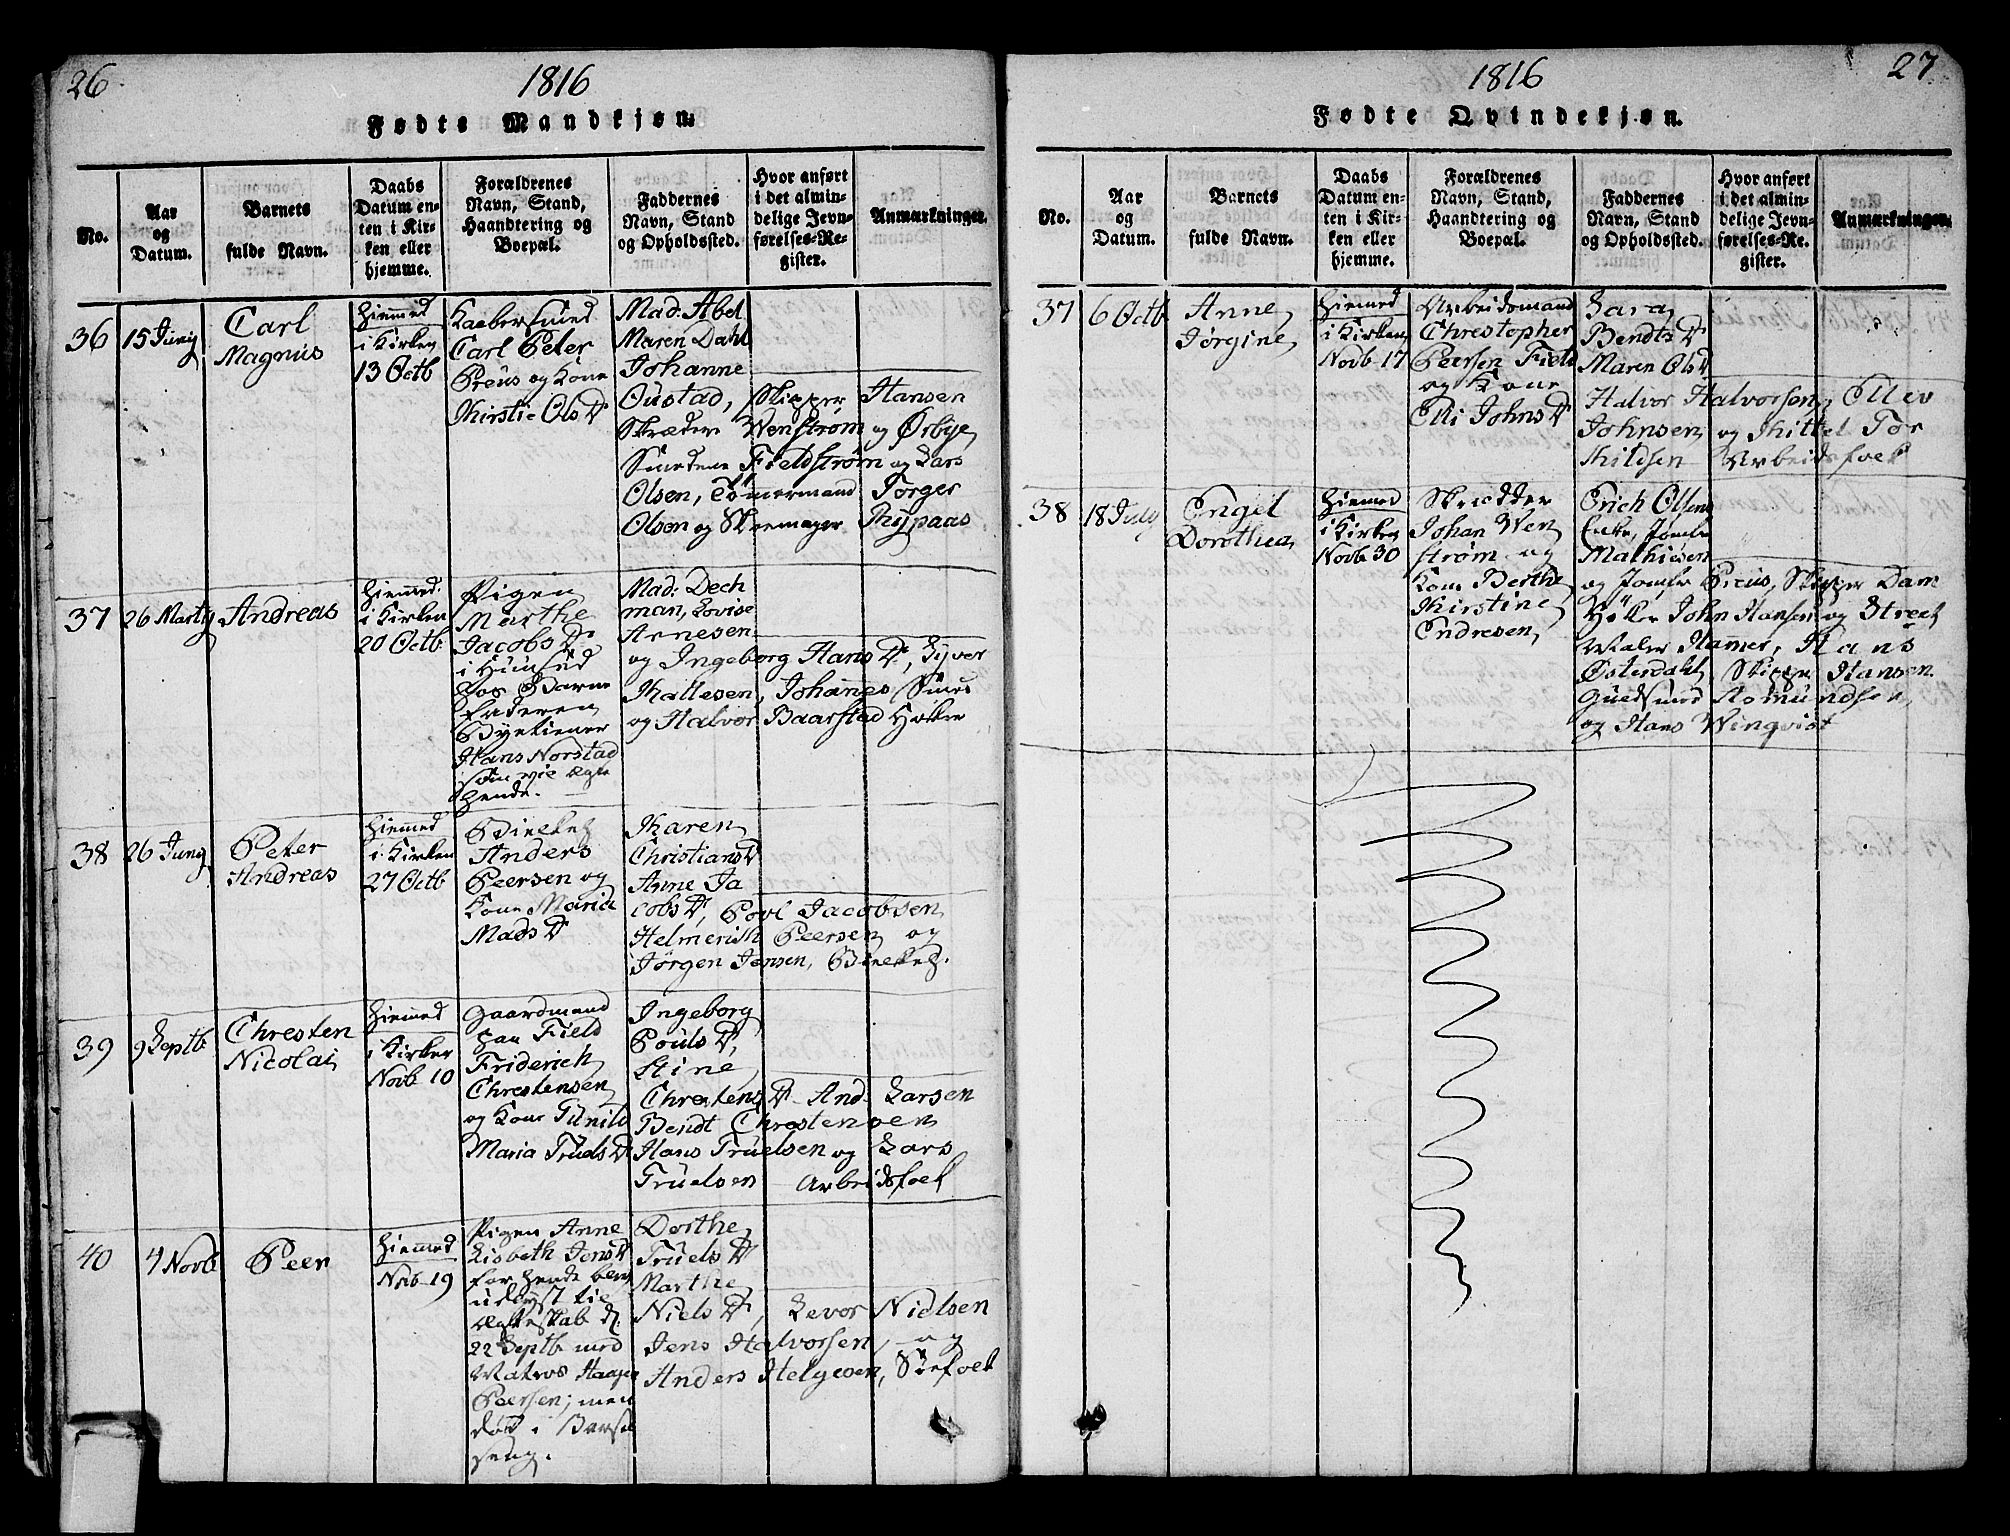 26
1816
Fødte Mandkjøn.
No.
Aar
og
Datum.
Barnets
fulde Navn.
Daabs
Datum en-
ten i Kir-
ken eller
hjemme.
Forældrenes
Navn, Stand,
Haandtering og
Boepæl.
Faddernes
Navn, Stand
og Opholdssted.
Hvor anført
i det almin-
delige Jevn-
førelses-Re-
gister.
Anmærkninger.
36
15 Juny
Carl
Magnus
Hiemed
i Kirken
13 Octb
Kaabersmed
Carl Peter
Preus og Kone
Kirstie Ols D
Mad: Abel
Maren Dahl
Johanne
Oustad, Skipper Hansen
Skræder Wenstrøm og Ørbye
Smedene Fieldstrøm og Lars
Olsen, Tømermand Torger
Olsen og Skoemager Thypaas
37
26 Marty
Andreas
Hiemed.
i Kirken
20 Octb
Pigen
Marthe
Jacobs D
i Huused
hos Barne
faderen
Byetiener
Hans Norstad
som vil ægte
hende.
Mad: Dech
man, Lovise
Arnesen
og Ingeborg Hans D, Syver
Kallesen, Johanes Smed
og Halvor Baarstad Høker
38
26 Juny
Peter
Andreas
Hiemed
i Kirken
27 Octb
Anders
Peersen og
Kone Maria
Mads D
Karen
Christians D
Anne Ja
cobs D, Povl Jacobsen
Helmerich Peersen og
Jørgen Jensen,
39
9 Septb
Chresten
Nicolai
Hiemed
i Kirken
Novb 10
Gaardmand
paa Field
Friderich
Chrestensen
og Kone Gunild
Maria Truels D
Ingeborg
Pouls D,
Stine
Chrestens D And. Larsen
Bendt Chrestensen
Hans Truelsen og Lars
Truelsen Arbeidsfolk
40
4 Novb
Peer
Hiemed
Novb 19
Pigen Anne
Lisbeth Jens D
for hende blev
udlyst til
Ægteskab d.
22 Septb med
Matros Haagen
Peersen; men
død i Barsel
seng.
Dorthe
Truels D
Marthe
Niels D, Levor Nielsen
Jens Halvorsen, og
Anders Helgesen, Søefolk
1816
27
Fødte Qvindekjøn.
No.
Aar
og
Datum.
Barnets
fulde Navn.
Daabs
Datum en-
ten i Kir-
ken eller
hjemme.
Forældrenes
Navn, Stand,
Haandtering og
Boepæl.
Faddernes
Navn, Stand
og Opholdssted.
Hvor anført
i det almin-
delige Jevn-
førelses-Re-
gister.
Anmærkninger.
37
6 Octb
Anne
Jørgine
Hiemed
i Kirken
Novb 17
Arbeidsmand
Chrestopher
Peersen Field
og Kone
Elli Johns D
Sara
Bendts D
Maren Ols D
Halvor Halvorsen, Ellev
Johnsen og Kittel Tor
kildsen Arbeidsfolk
38
18 July
Engel
Dorothea
Hiemed
i Kirken
Novb 30
Skrædder
Johan Wen
strøm og
Kone Berthe
Kirstine
Endresen
Erich Olsens
Enke, Jomfr
Mathiesen
og Jomfr Preus, Skipper Dam
Høker John Hansen og Streck
Maler Hamer, Hans
Østerdahl Skipper Hansen
Guldsmed Asmundsen
og Hans Winqvist